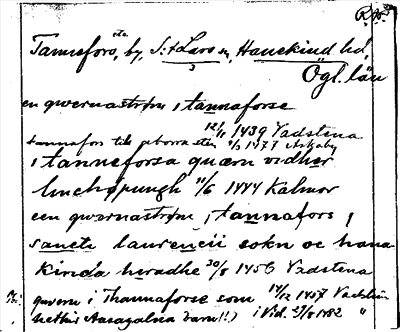 Tannefors, by, S:t Lars sn, Hanekind hd,
Ögl. län
en qwernaström i tannaforse
12/11 1439 Vadstena
tannafors till geborna 1477 Askaby
i tanneforsa quærn vidher
linchøpungh 11/6 1444 Kalmar
een qwernastrøm i tannafors i
sancti laurencii sokn oc hana
kinda heradhe 30/8 1456 Vadstena
quern i Thannaforse som 14/12 1457 Vadstena
hethir Aasagalna 1482 "